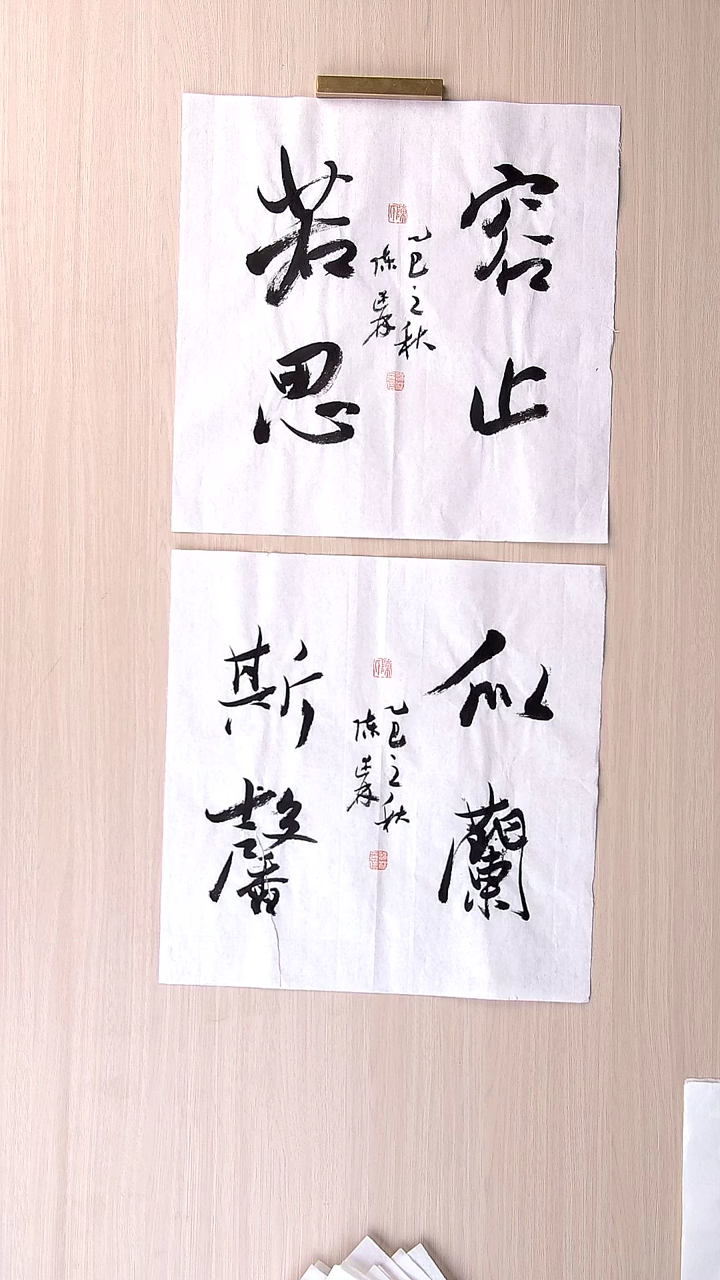 容止
若思
乙巳之秋
陈
似蘭
斯馨
乙巳之秋
陈